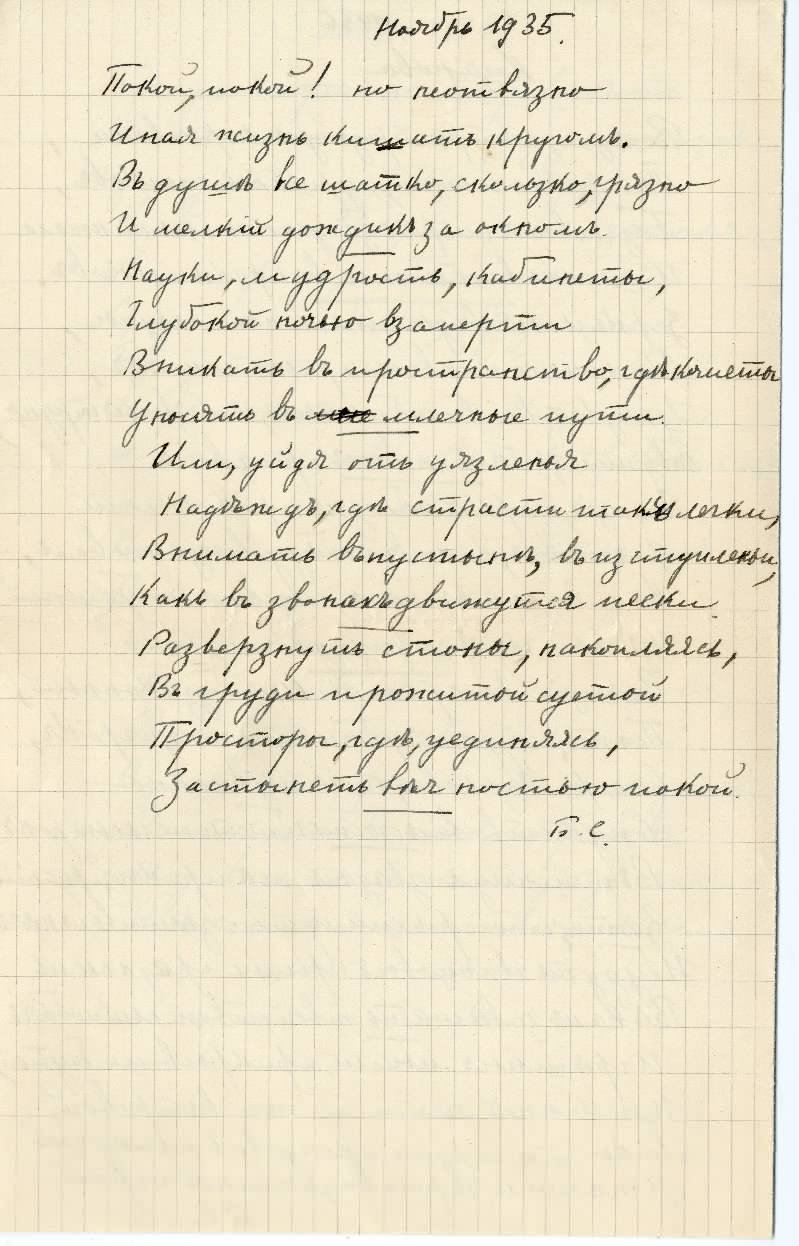 Ноябрь 1935.
Покой, покой! но неотвязно
Иная жизнь кишать кругомъ.
Въ душѣ все шатко, скользко, грязно
И мелкій дождикъ за окномъ.
Науки, мудрость, кабинеты,
Глубокой ночью взаперти
Вникать въ пространство, гдѣ кометы
Уносятъ въ млечные пути.
Или, уйдя отъ уязвленья
Надеждъ, гдѣ страсти такъ легки,
Внимать въ пустынѣ, въ изступленьи,
Какъ въ звонахъ движутся пески.
Разверзнутъ стоны, накопляясь,
Въ груди прожитой суетой
Просторы, гдѣ, уединяясь,
Застонетъ вѣчностью покой.
Б. С.